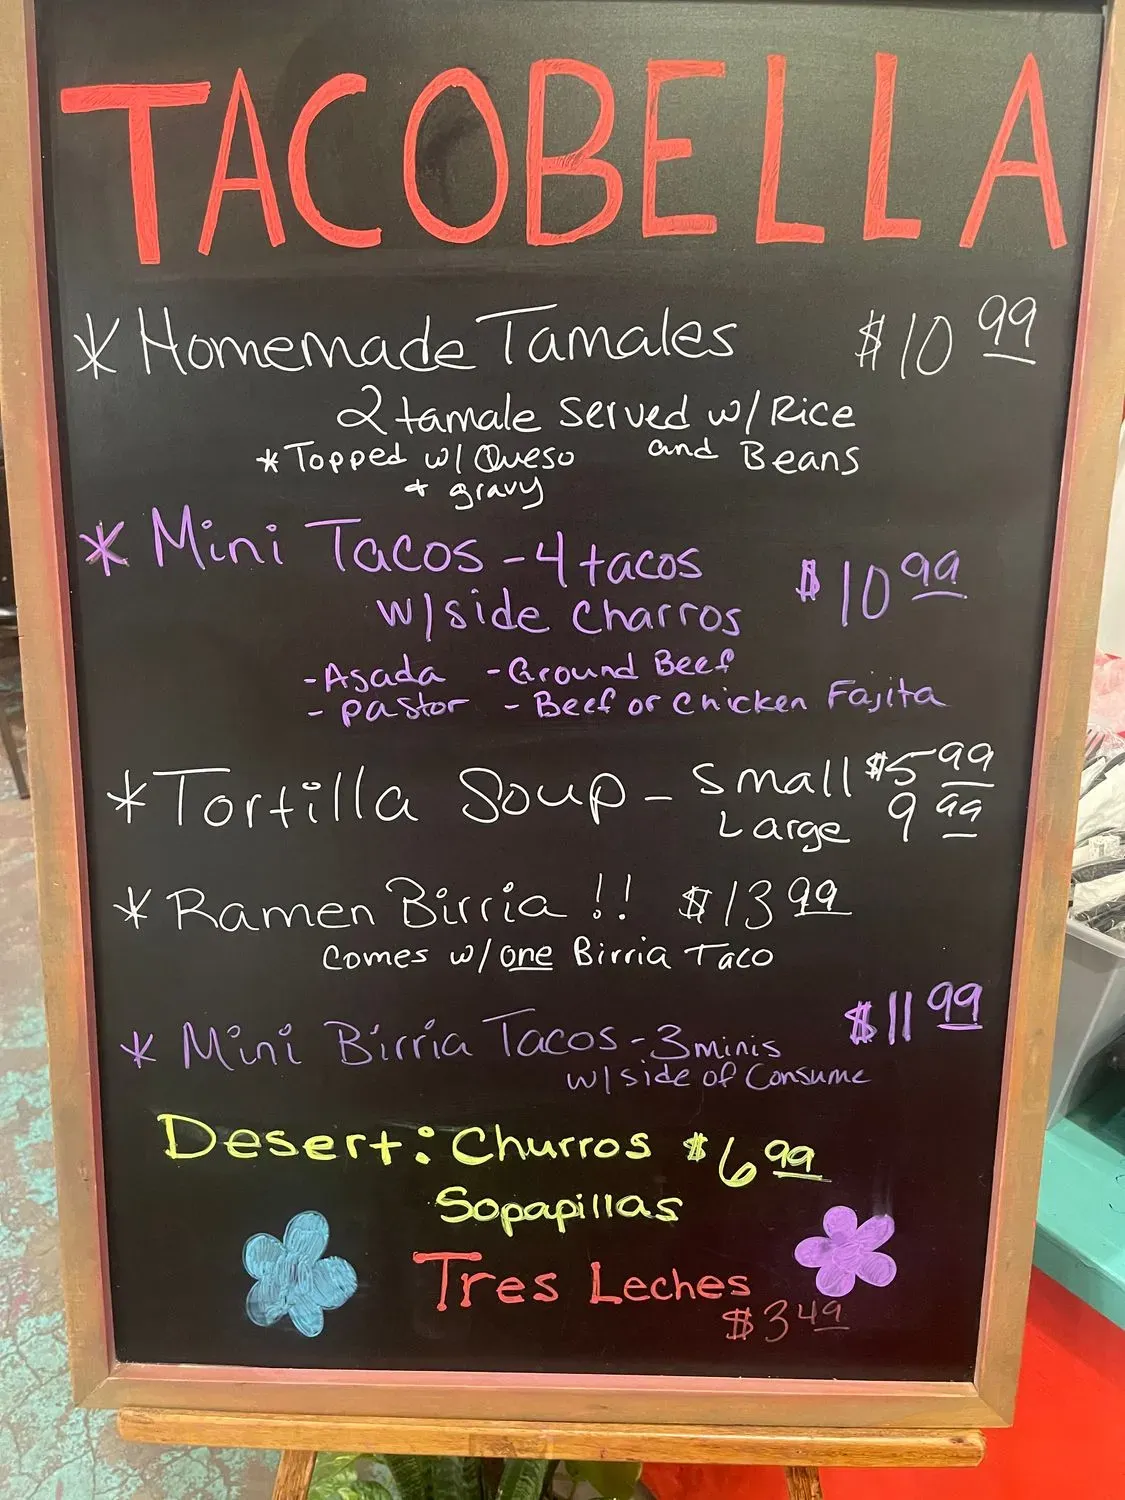 TACOBELLA
* Homemade Tamales $10 99
2 tamale served w/ Rice
and Beans
* Topped w/ Queso
+ gravy
* Mini Tacos - 4 tacos $10 99
w/side charros
- Asada - Ground Beef
- Pastor - Beef or Chicken Fajita
* Tortilla Soup - Small $5 99
Large 9 99
* Ramen Birria !! $13 99
Comes w/one Birria Taco
* Mini Birria Tacos - 3 minis $11 99
w/side of Consume
Desert: Churros $6 99
Sopapillas
Tres Leches
$3 49